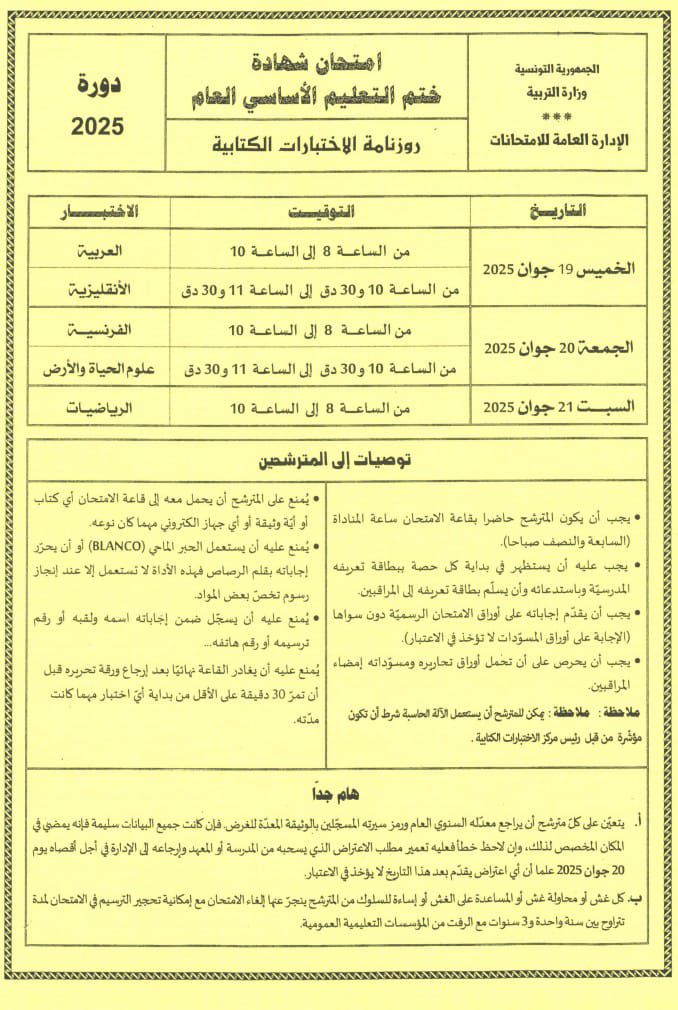 الجمهورية التونسية
وزارة التربية
***
الإدارة العامة للامتحانات
امتحان شهادة
ختم التعليم الأساسي العام
روزنامة الاختبارات الكتابية
دورة
2025
التاريخ التوقيت الاختبار
الخميس 19 جوان 2025
من الساعة 8 إلى الساعة 10 العربية
من الساعة 10 و30 دق إلى الساعة 11 و30 دق الأنقليزية
الجمعة 20 جوان 2025
من الساعة 8 إلى الساعة 10 الفرنسية
من الساعة 10 و30 دق إلى الساعة 11 و30 دق علوم الحياة والأرض
السبت 21 جوان 2025 من الساعة 8 إلى الساعة 10 الرياضيات
توصيات إلى المترشحين
• يجب أن يكون المترشح حاضرا بقاعة الامتحان ساعة المناداة
(السابعة والنصف صباحا).
• يجب عليه أن يستظهر في بداية كل حصة ببطاقة تعريفه
المدرسيّة وباستدعائه وأن يسلّم بطاقة تعريفه إلى المراقبين.
• يجب أن يقدّم إجاباته على أوراق الامتحان الرسميّة دون سواها
(الإجابة على أوراق المسوّدات لا تؤخذ في الاعتبار).
• يجب أن يحرص على أن تحمل أوراق تحاريره ومسوّداته إمضاء
المراقبين.
ملاحظة : ملاحظة : يمكن للمترشح أن يستعمل الآلة الحاسبة شرط أن تكون
مؤشّرة من قبل رئيس مركز الاختبارات الكتابية .
• يُمنع على المترشح أن يحمل معه إلى قاعة الامتحان أي كتاب
أو أيّة وثيقة أو أي جهاز الكتروني مهما كان نوعه.
• يُمنع عليه أن يستعمل الحبر الماحي (BLANCO) أو أن يحرّر
إجاباته بقلم الرصاص فهذه الأداة لا تستعمل إلا عند إنجاز
رسوم تخصّ بعض المواد.
• يُمنع عليه أن يسجّل ضمن إجاباته اسمه ولقبه أو رقم
ترسيمه أو رقم هاتفه...
يُمنع عليه أن يغادر القاعة نهائيّا بعد إرجاع ورقة تحريره قبل
أن تمرّ 30 دقيقة على الأقل من بداية أيّ اختبار مهما كانت
مدّته.
هام جدّا
أ. يتعيّن على كلّ مترشح أن يراجع معدّله السنوي العام ورمز سيرته المسجّلين بالوثيقة المعدّة للغرض. فإن كانت جميع البيانات سليمة فإنه يمضي في
المكان المخصص لذلك، وإن لاحظ خطأ فعليه تعمير مطلب الاعتراض الذي يسحبه من المدرسة أو المعهد وإرجاعه إلى الإدارة في أجل أقصاه يوم
20 جوان 2025 علما أن أي اعتراض يقدّم بعد هذا التاريخ لا يؤخذ في الاعتبار.
ب. كل غش أو محاولة غش أو المساعدة على الغش أو إساءة للسلوك من المترشح ينجرّ عنها إلغاء الامتحان مع إمكانية تحجير الترسيم في الامتحان لمدة
تتراوح بين سنة واحدة و3 سنوات مع الرفت من المؤسسات التعليمية العمومية.